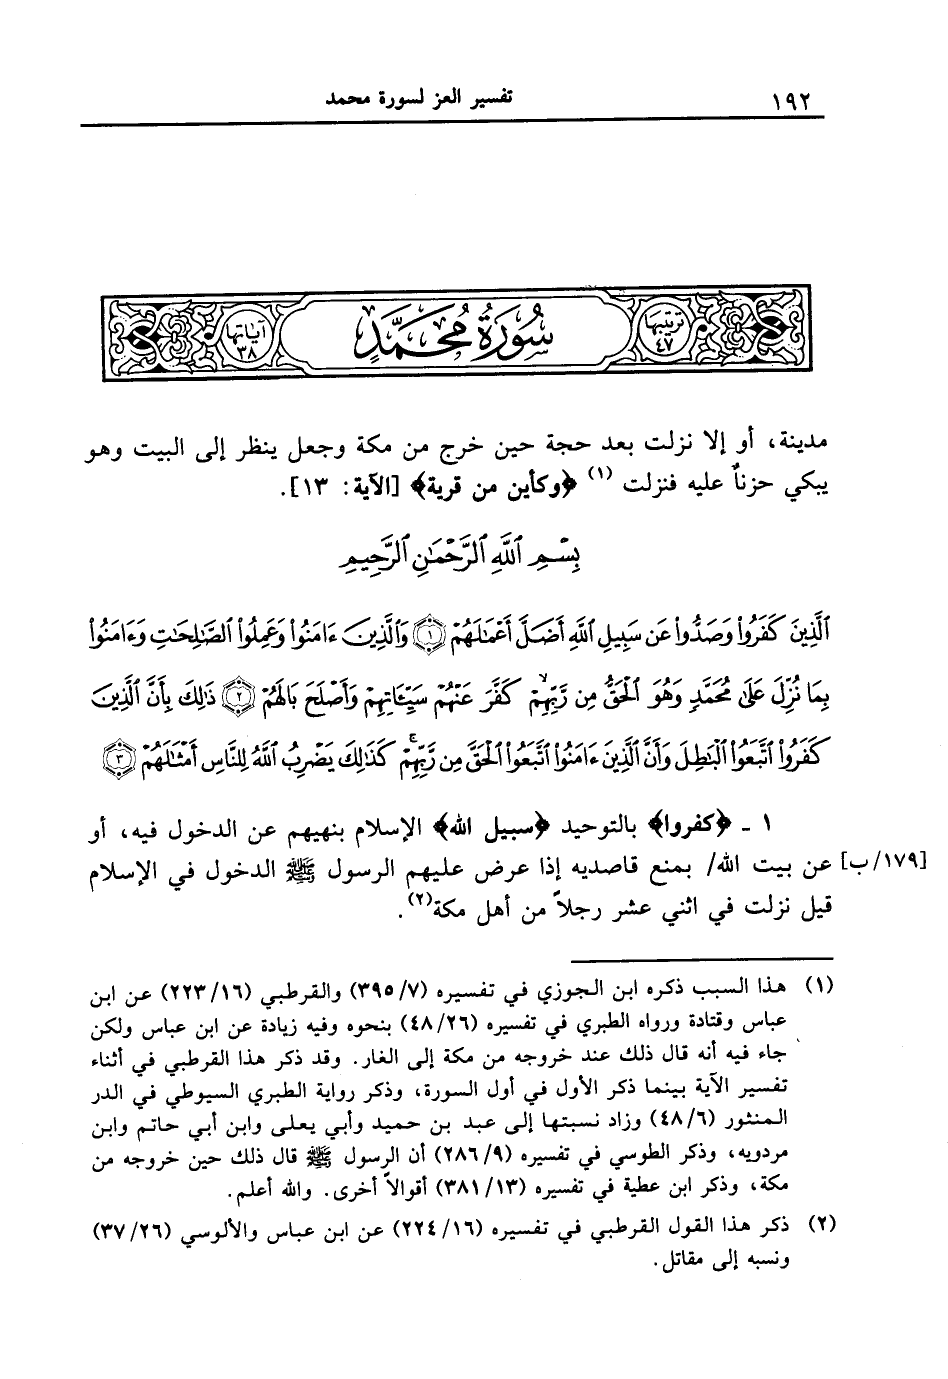 ١٩٢
تفسير العز لسورة محمد
ترتيبها ٤٧
سُورَةُ مُحَمَّدٍ
آياتها ٣٨
مدينة، أو إلا نزلت بعد حجة حين خرج من مكة وجعل ينظر إلى البيت وهو
يبكي حزناً عليه فنزلت (١) ﴿وكأين من قرية﴾ [الآية: ١٣].
بِسْمِ ٱللَّهِ ٱلرَّحْمَٰنِ ٱلرَّحِيمِ
ٱلَّذِينَ كَفَرُوا۟ وَصَدُّوا۟ عَن سَبِيلِ ٱللَّهِ أَضَلَّ أَعْمَٰلَهُمْ ١ وَٱلَّذِينَ ءَامَنُوا۟ وَعَمِلُوا۟ ٱلصَّٰلِحَٰتِ وَءَامَنُوا۟
بِمَا نُزِّلَ عَلَىٰ مُحَمَّدٍ وَهُوَ ٱلْحَقُّ مِن رَّبِّهِمْ ۙ كَفَّرَ عَنْهُمْ سَيِّـَٔاتِهِمْ وَأَصْلَحَ بَالَهُمْ ٢ ذَٰلِكَ بِأَنَّ ٱلَّذِينَ
كَفَرُوا۟ ٱتَّبَعُوا۟ ٱلْبَٰطِلَ وَأَنَّ ٱلَّذِينَ ءَامَنُوا۟ ٱتَّبَعُوا۟ ٱلْحَقَّ مِن رَّبِّهِمْ ۚ كَذَٰلِكَ يَضْرِبُ ٱللَّهُ لِلنَّاسِ أَمْثَٰلَهُمْ ٣
١ ـ ﴿كفروا﴾ بالتوحيد ﴿سبيل الله﴾ الإسلام بنهيهم عن الدخول فيه، أو
[١٧٩/ب] عن بيت الله/ بمنع قاصديه إذا عرض عليهم الرسول ﷺ الدخول في الإسلام
قيل نزلت في اثني عشر رجلاً من أهل مكة(٢).
(١) هذا السبب ذكره ابن الجوزي في تفسيره (٣٩٥/٧) والقرطبي (٢٢٣/١٦) عن ابن
عباس وقتادة ورواه الطبري في تفسيره (٤٨/٢٦) بنحوه وفيه زيادة عن ابن عباس ولكن
جاء فيه أنه قال ذلك عند خروجه من مكة إلى الغار. وقد ذكر هذا القرطبي في أثناء
تفسير الآية بينما ذكر الأول في أول السورة، وذكر رواية الطبري السيوطي في الدر
المنثور (٤٨/٦) وزاد نسبتها إلى عبد بن حميد وأبي يعلى وابن أبي حاتم وابن
مردويه، وذكر الطوسي في تفسيره (٢٨٦/٩) أن الرسول ﷺ قال ذلك حين خروجه من
مكة، وذكر ابن عطية في تفسيره (٣٨١/١٣) أقوالاً أخرى. والله أعلم.
(٢) ذكر هذا القول القرطبي في تفسيره (٢٢٤/١٦) عن ابن عباس والألوسي (٣٧/٢٦)
ونسبه إلى مقاتل.